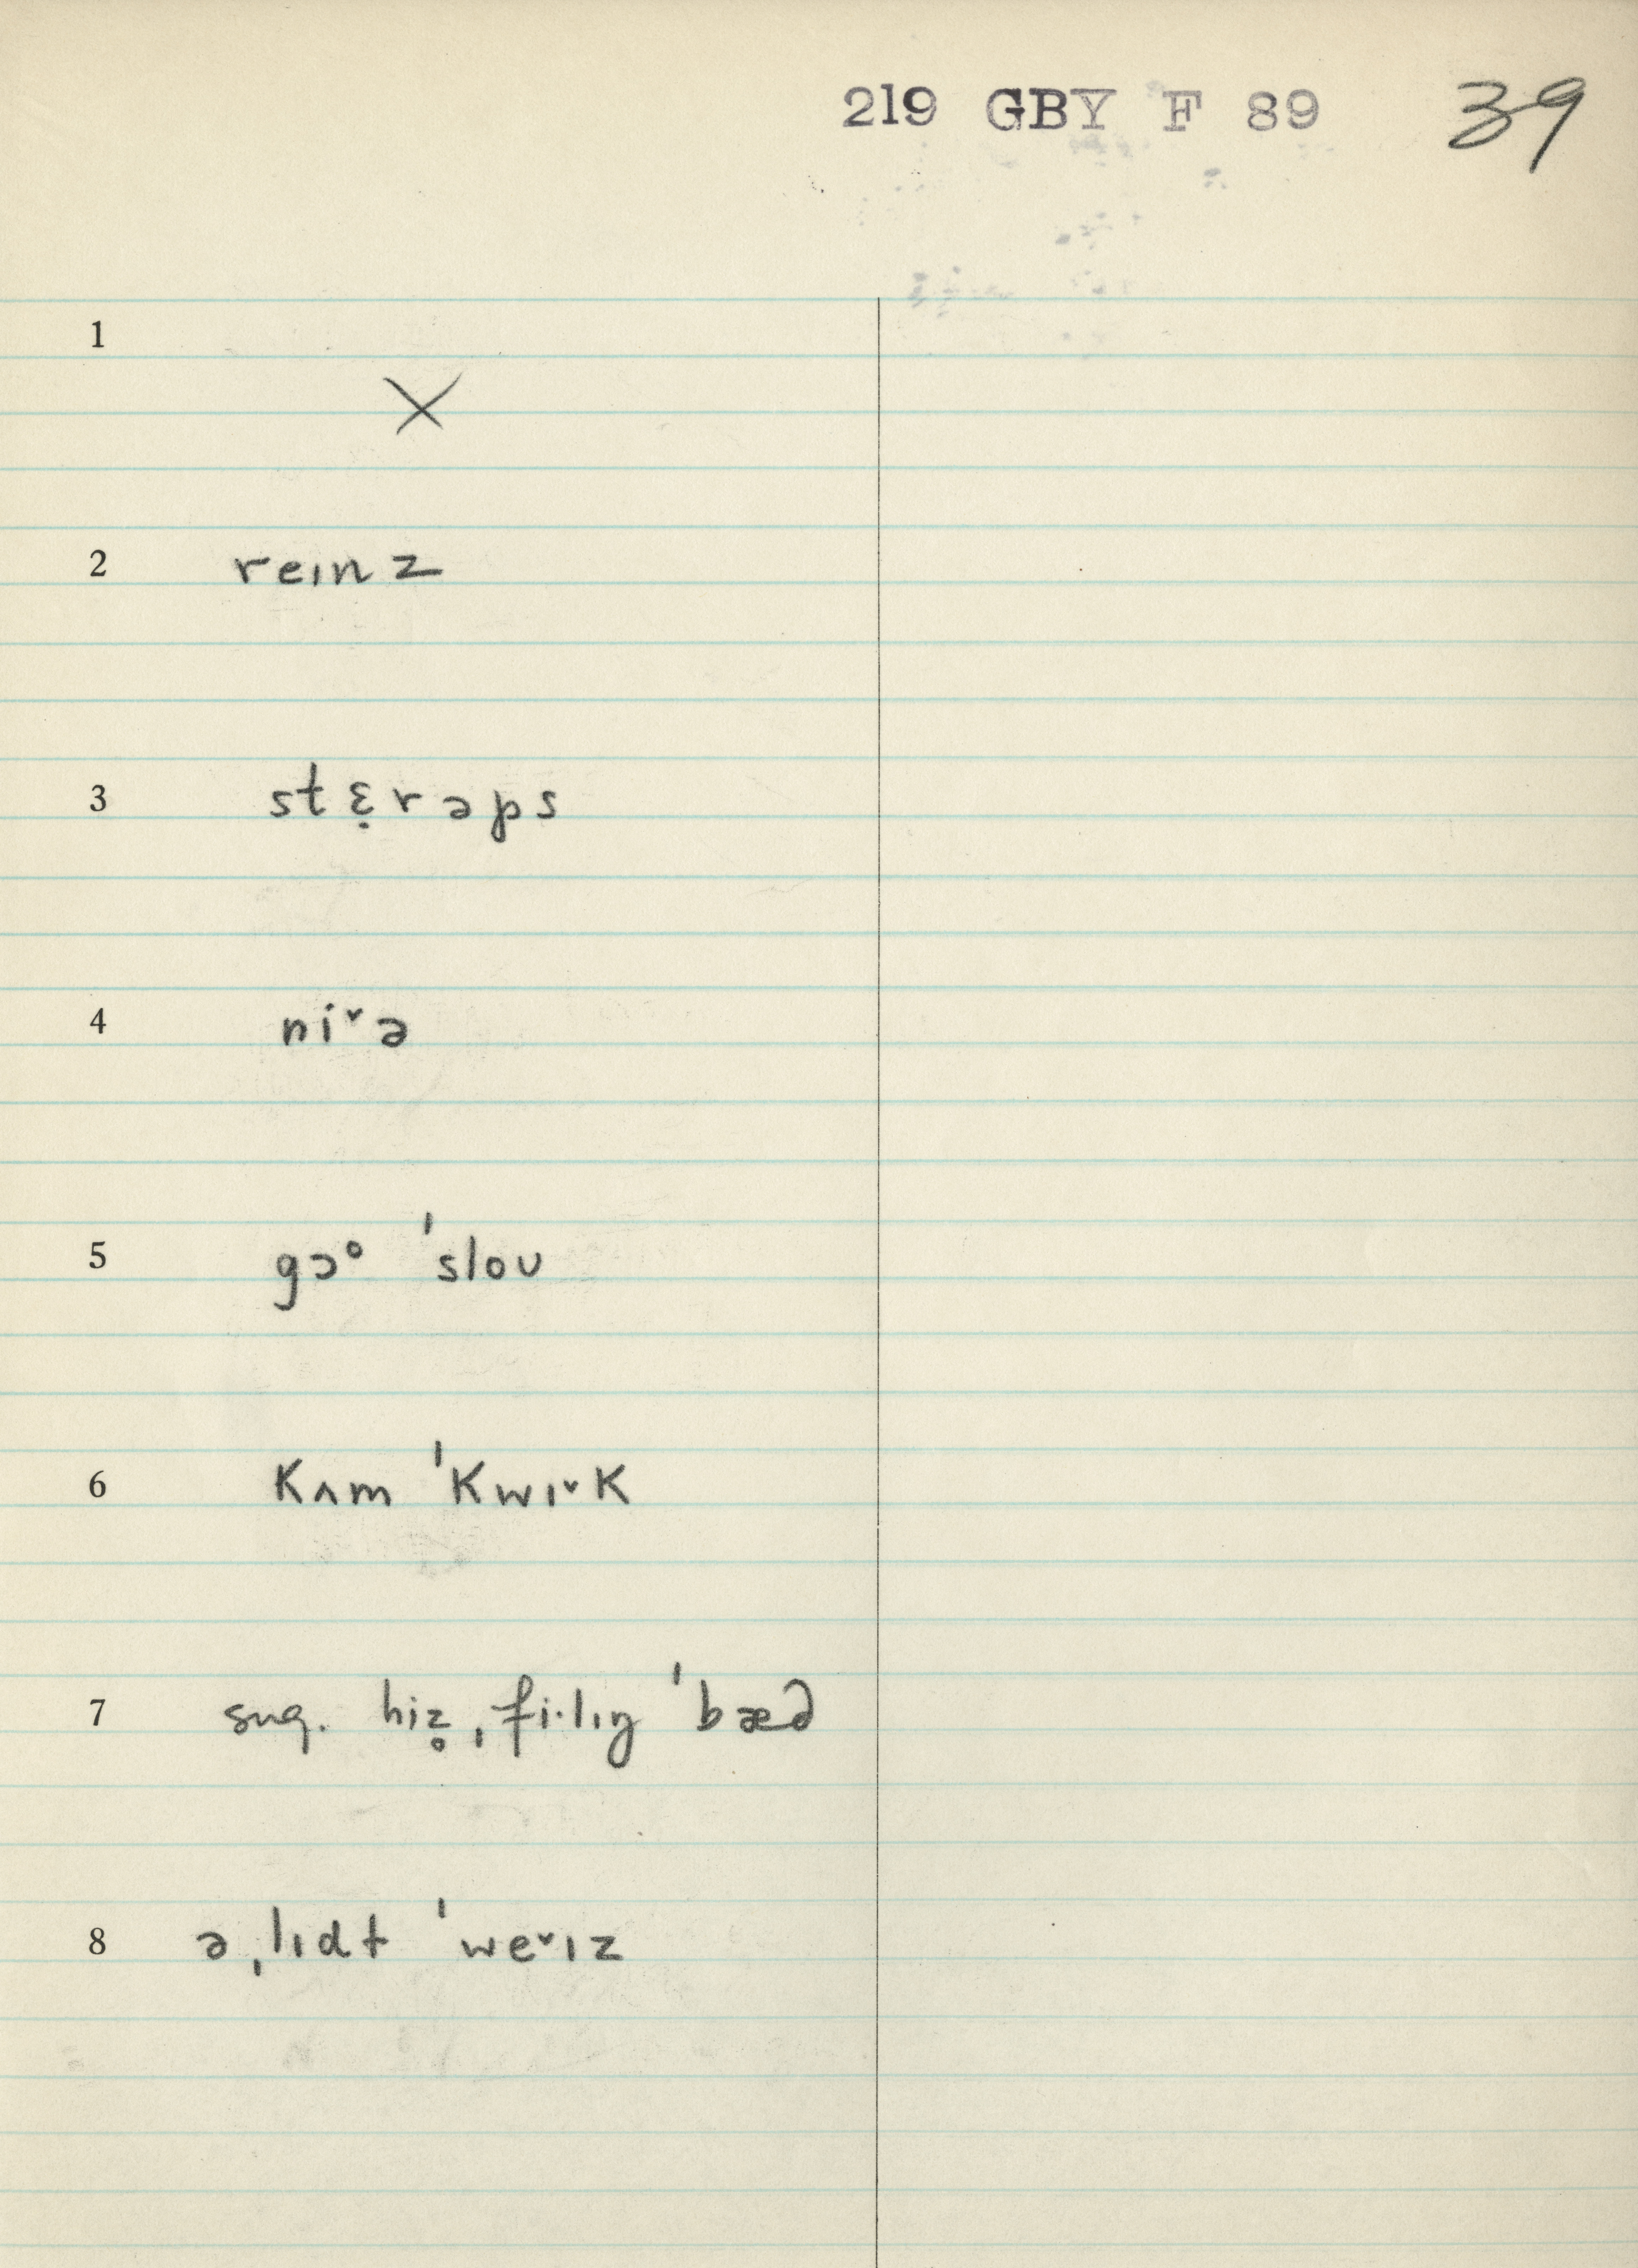 219 GBY F 89 39
1
X
2 reɪnz
3 stɛ̣rəps
4 niˇə
5 gɔᵒ ˈsloʊ
6 Kʌm ˈKwɪˇK
7 sug. hiz̥ ˌfi·lɪŋ ˈbæd
8 ə ˌlɪdt ˈweˇɪz